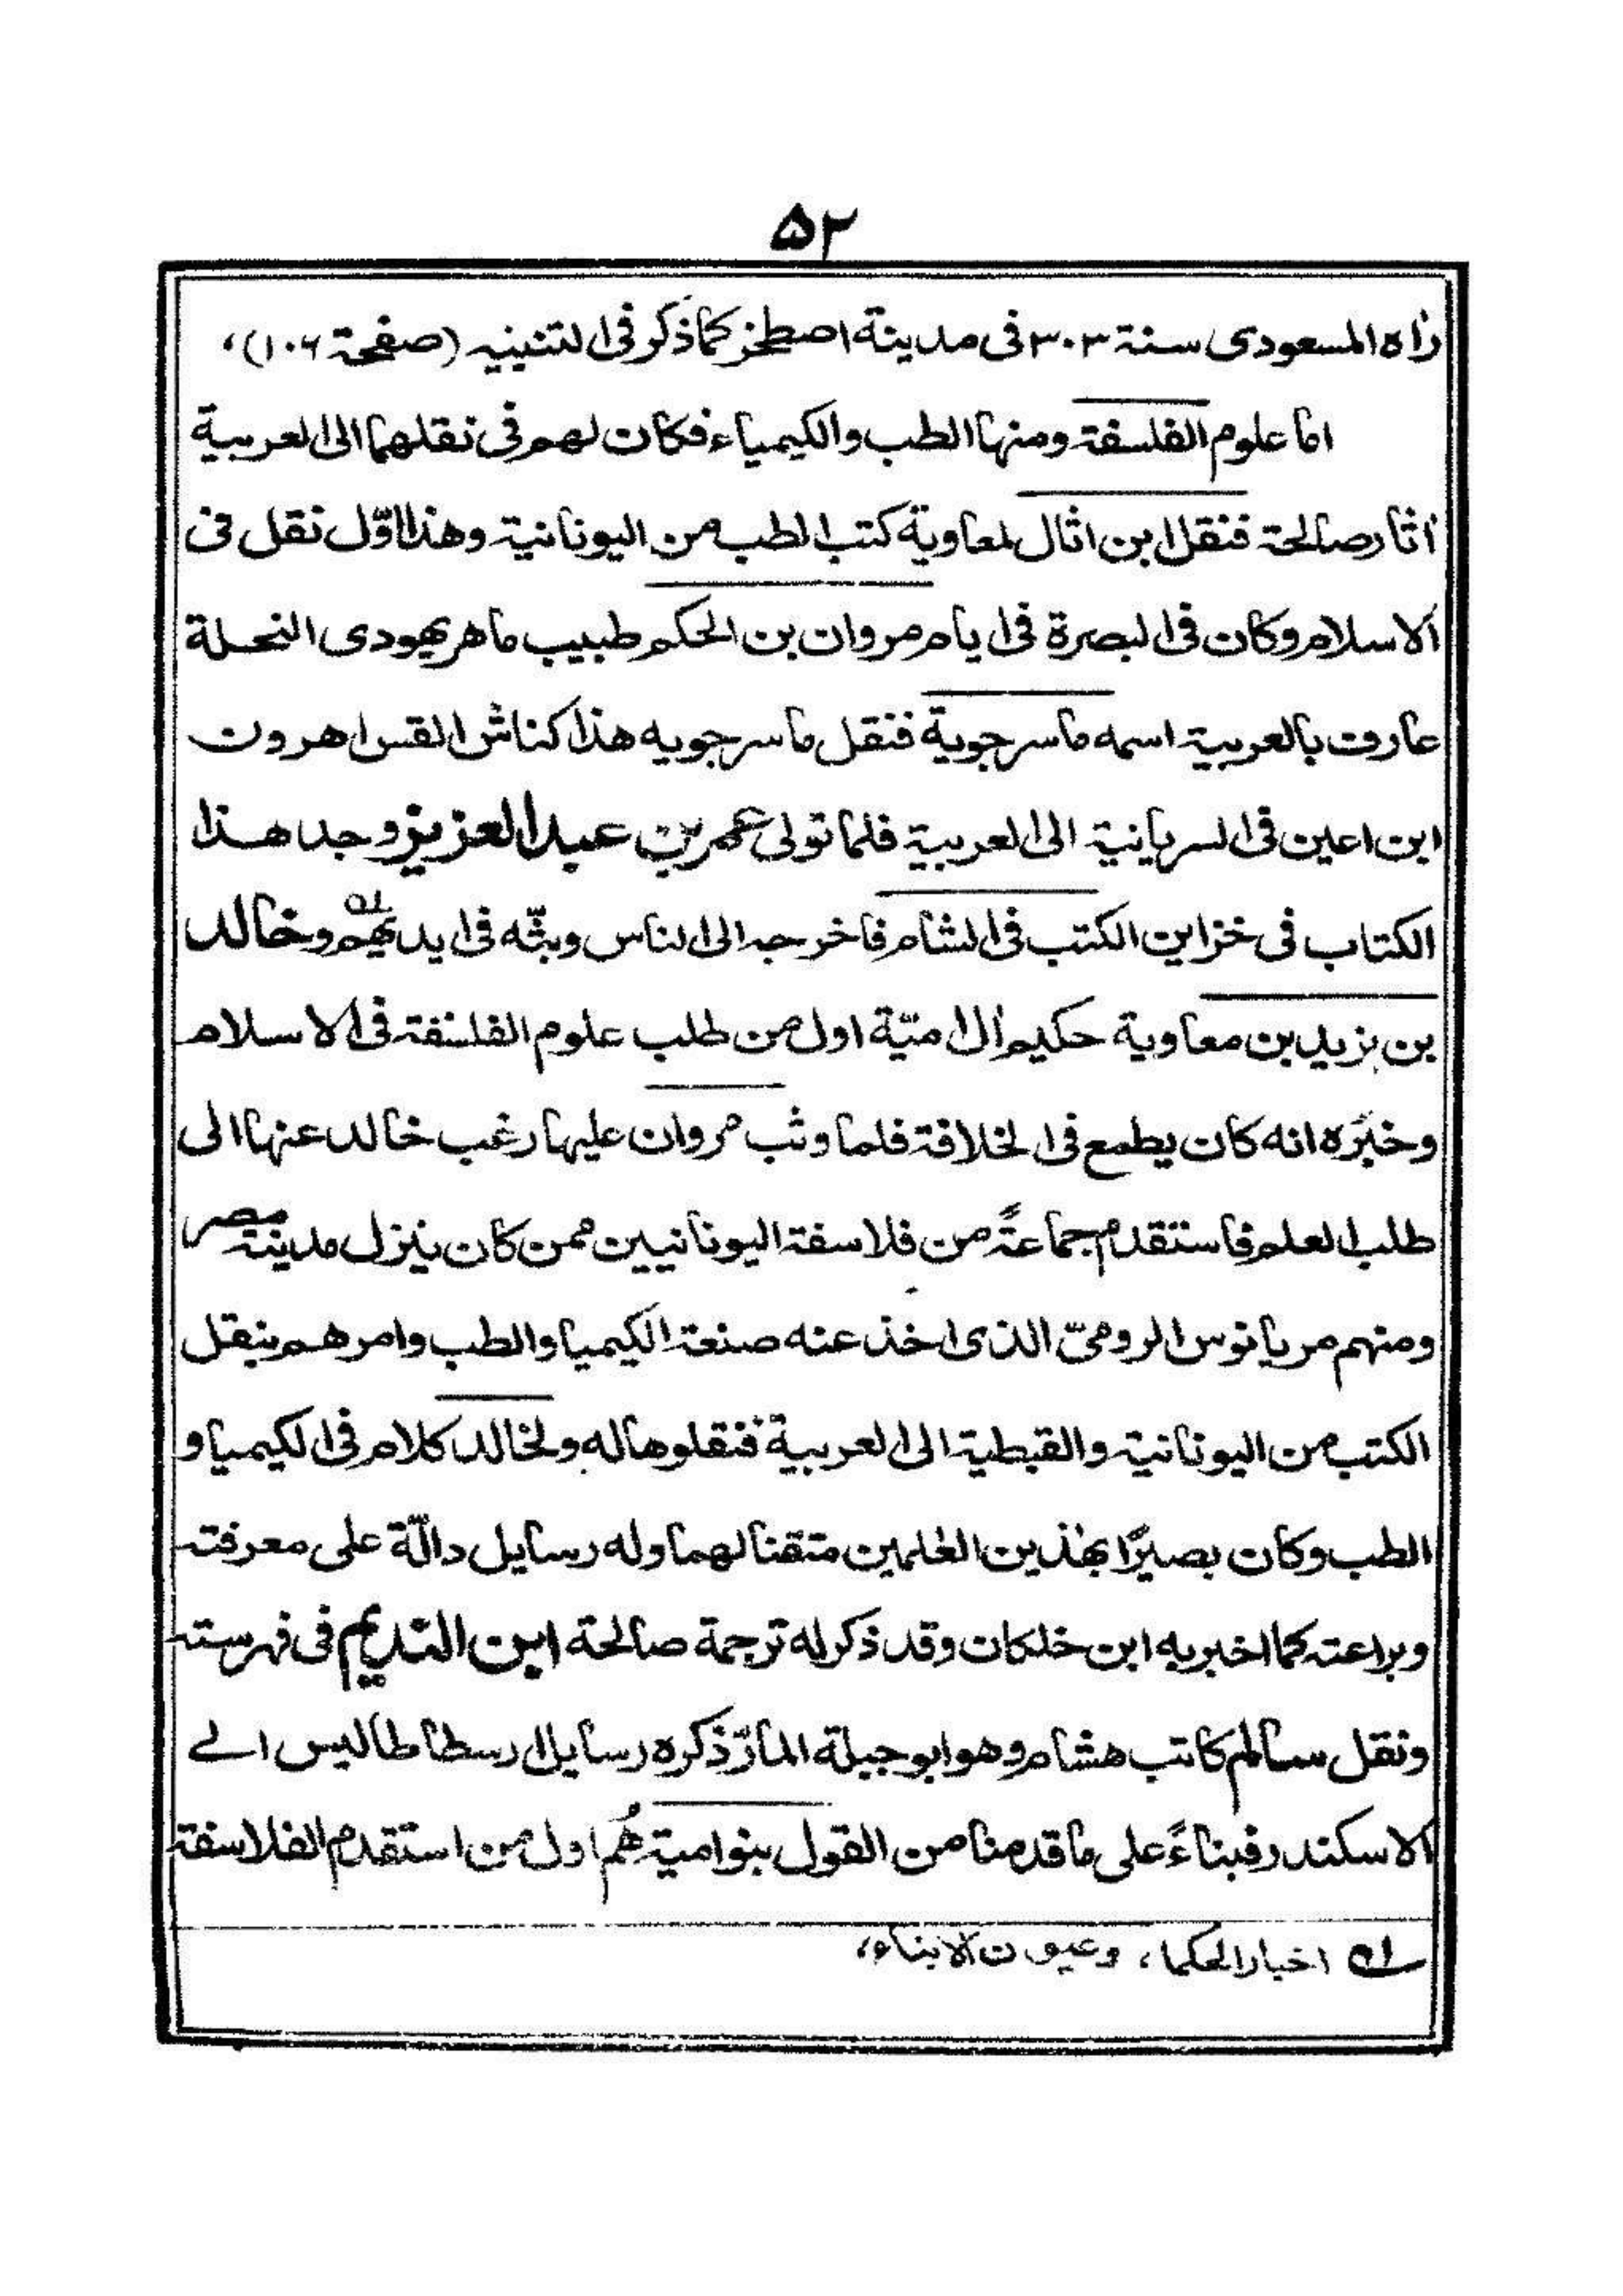 ۵۲
رٰاه المسعودى سنة ۳۰۳ فى مدينة اصطخر كما ذكر فى التنبيه (صفحة ۱۰۶)،
اما علوم الفلسفة ومنها الطب والكيمياء فكان لهم فى نقلهما الى العربية
اٰثار صالحة فنقل ابن اثال لمعاوية كتب الطب من اليونانية وهذا اوّل نقل فى
الاسلام وكان فى البصرة فى ايام مروان بن الحكم طبيب ماهر يهودى النحلة
عارف بالعربية اسمه ماسرجوية فنقل ماسرجويه هذا كناش القس اهرون
ابن اعين فى السريانية الى العربية فلما تولى عمر بن عبد العزيز وجد هذا
الكتاب فى خزاين الكتب فى الشام فاخرجه الى الناس وبثّه فى ايديهم ؎۱ وخالد
بن يزيد بن معاوية حكيم اٰل اميّة اول من طلب علوم الفلسفة فى الاسلام
وخبَره انه كان يطمع فى الخلافة فلما وثب مروان عليها رغب خالد عنها الى
طلب العلم فاستقدم جماعةً من فلاسفة اليونانيين ممن كان ينزل مدينة مصر
ومنهم مريانوس الرومىّ الذى اخذ عنه صنعة الكيميا والطب وامرهم بنقل
الكتب من اليونانية والقبطية الى العربية فنقلوها له ولخالد كلام فى الكيميا و
الطب وكان بصيرًا بهٰذين العلمين متقنا لهما وله رسايل دالّة على معرفته
وبراعته كما اخبر به ابن خلكان وقد ذكر له ترجمة صالحة ابن النديم فى فهرسته
ونقل سالم كاتب هشام وهو ابو جبلة المارّ ذكره رسايل ارسطاطاليس الے
الاسكندر فبناءً على ما قدمنا من القول بنو امية هُم اول من استقدم الفلاسفة
؎۱ اخبار الحكما، وعيون الانباء،